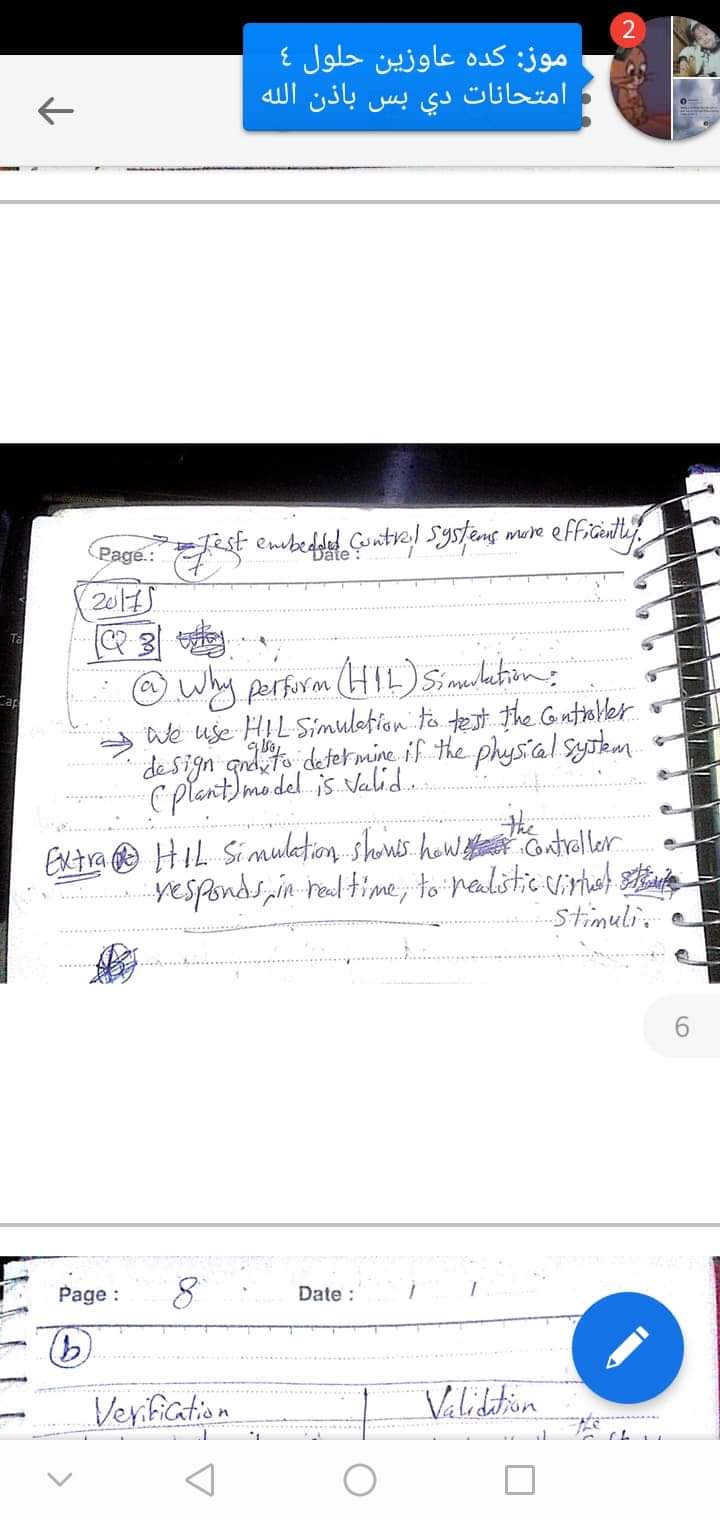 2
موز: كده عاوزين حلول ٤
امتحانات دي بس باذن الله
→ Test embedded Control systems more efficiently.
Page.: 7 Date :
2017S
Q 3
a Why perform (HIL) Simulation:
⇒ We use HIL Simulation to test the Controller
design and also to determine if the physical system
(plant) model is valid.
Extra HIL Simulation shows how the Controller
responds, in real time, to realistic virtual
stimuli.
6
Page : 8 Date : / /
b
Verification Validation
the